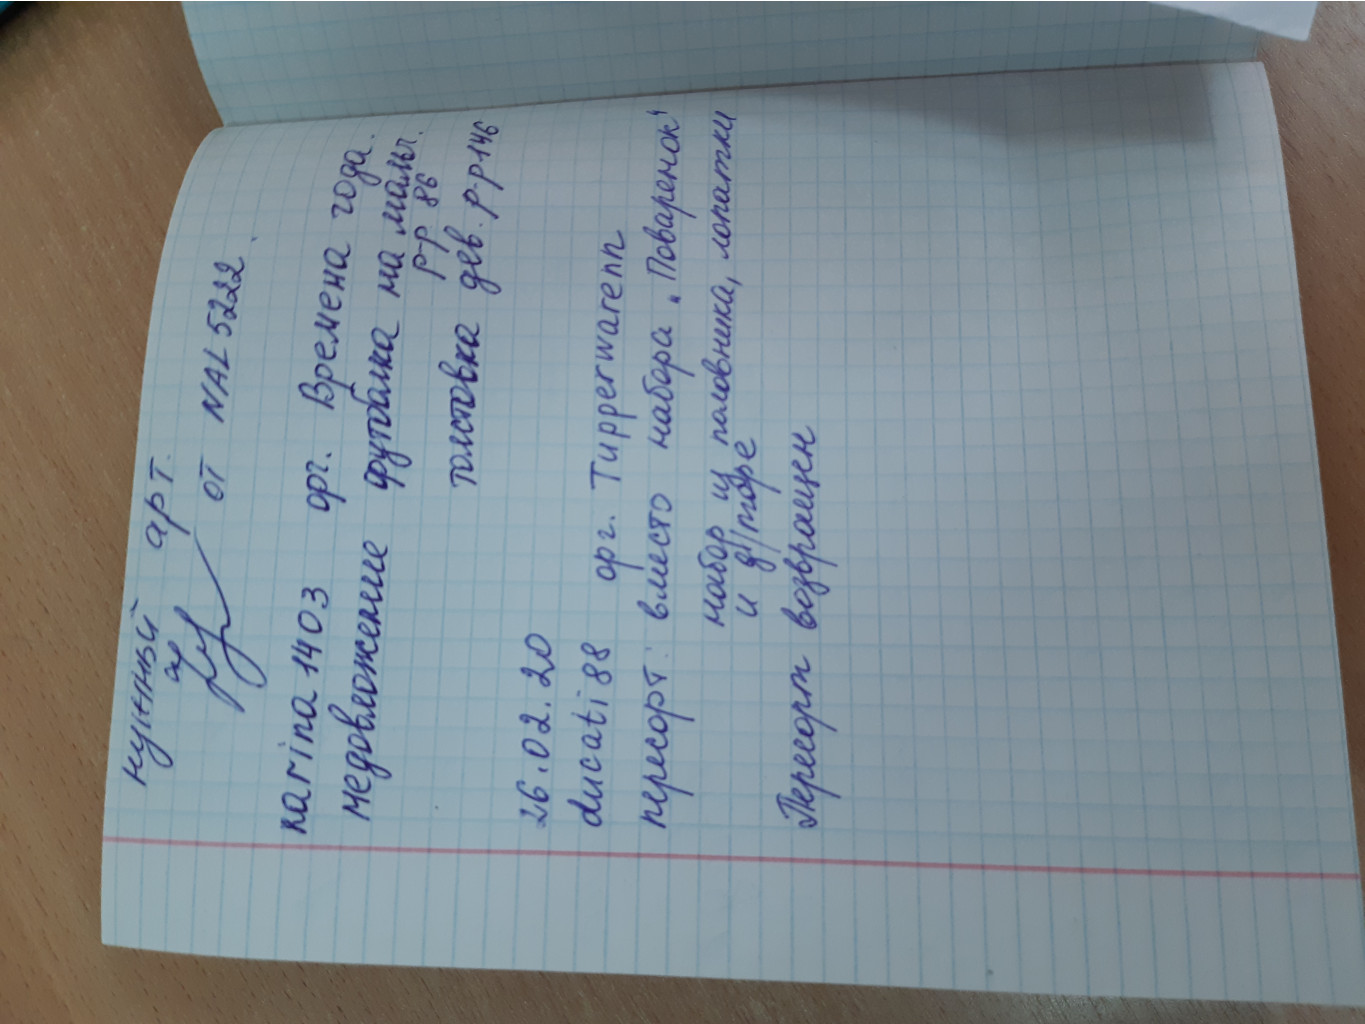 нужный арт.
от NAL5222.
karina1403 орг. Времена года.
недовложение футболка на мальч.
р-р 86
толстовка дев. р-р146
26.02.20
ducati88 орг. Tupperwarenn
пересорт: вместо набора „Поваренок"
набор из половника, лопатки
и д/пюре
Пересорт возвращен